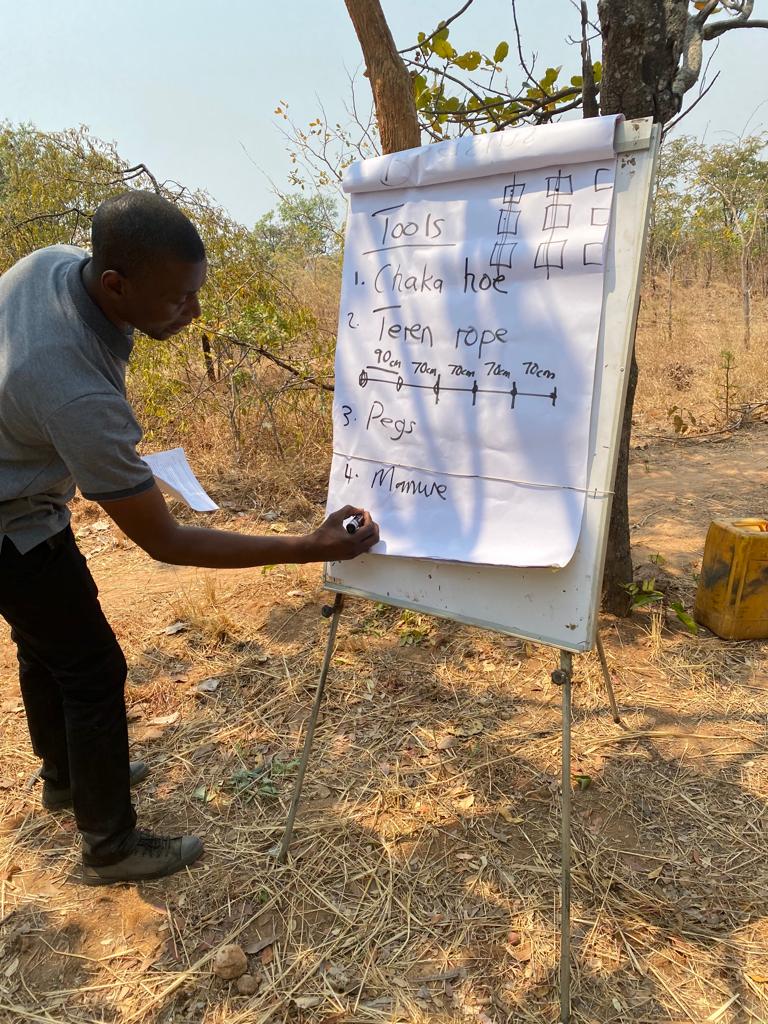 Tools
1. Chaka hoe
2. Teren rope
90cm 70cm 70cm 70cm 70cm
3. Pegs
4. Manure